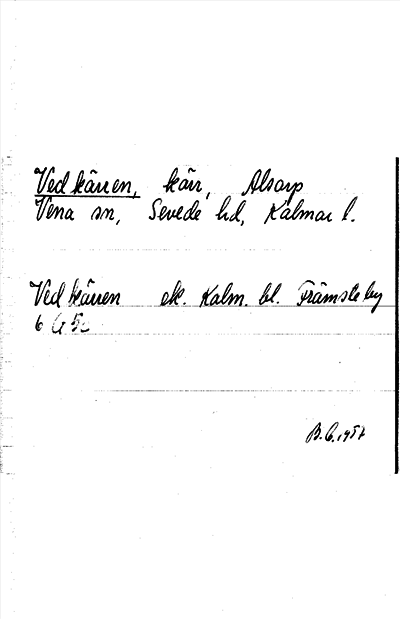 Vedkärren, kärr, Alsarp
Vena sn, Sevede hd, Kalmar l.
Vedkärren ek. Kalm. bl. Främsteby
6 G 5c
B.C. 1957